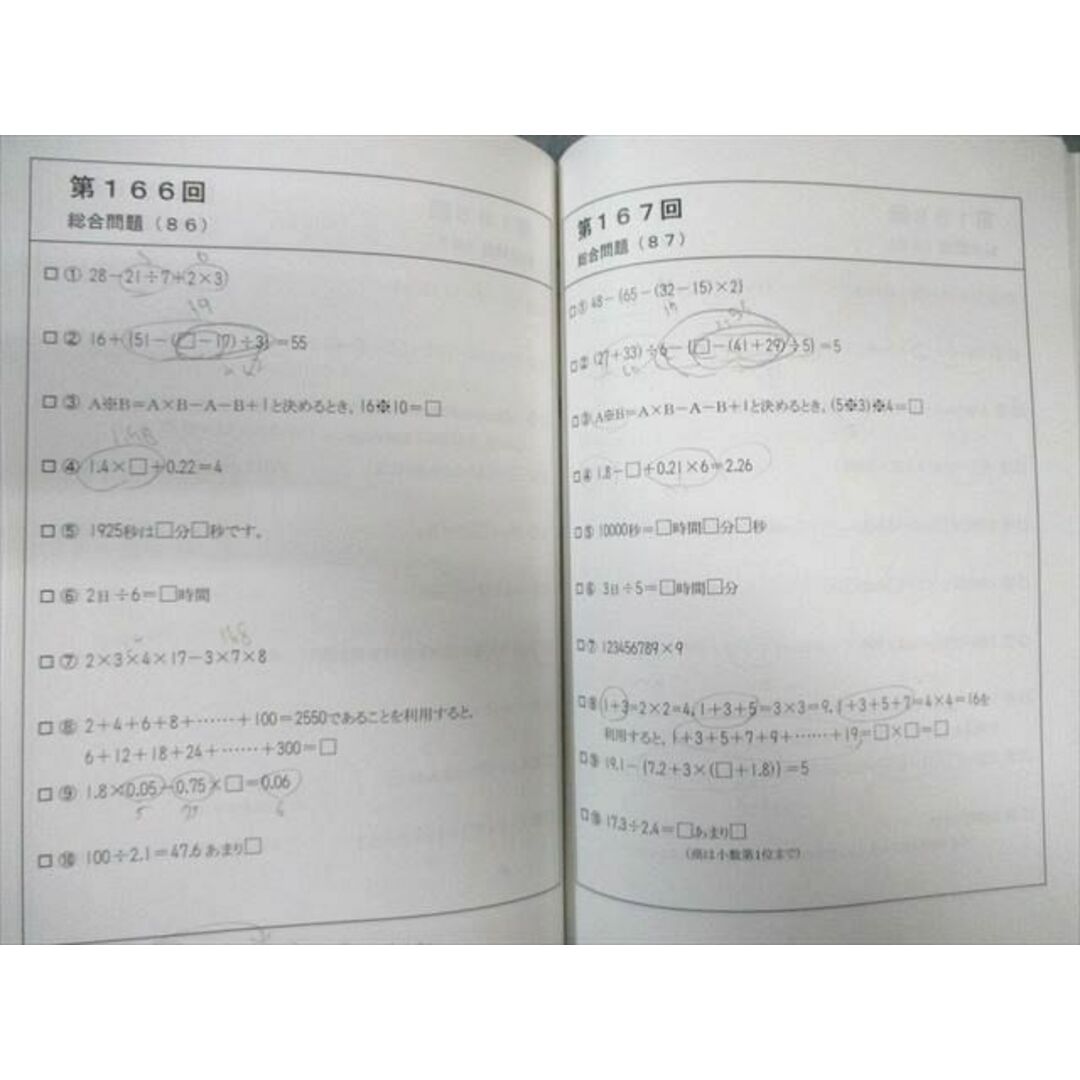 第166回
総合問題(86)
□ ① 28−21÷7+(2×3)
19
□ ② 16+{51−(□−17)÷3}=55
□ ③ A※B=A×B−A−B+1と決めるとき, 16※10=□
□ ④ 1.4×□+0.22=4
□ ⑤ 1925秒は□分□秒です。
□ ⑥ 2日÷6=□時間
168
□ ⑦ 2×3×4×17−3×7×8
□ ⑧ 2+4+6+8+……+100=2550であることを利用すると,
6+12+18+24+……+300=□
□ ⑨ 1.8×0.05−0.75×□=0.06
□ ⑩ 100÷2.1=47.6 あまり□
第167回
総合問題(87)
□① 48−{65−(32−15)×2}
□② (27+33)÷6−{□−(41+29)÷5}=5
□③ A※B=A×B−A−B+1と決めるとき, (5※3)※4=□
□④ 1.8−□+0.21×6=2.26
□⑤ 10000秒=□時間□分□秒
□⑥ 3日÷5=□時間□分
□⑦ 123456789×9
□⑧ 1+3=2×2=4, 1+3+5=3×3=9, 1+3+5+7=4×4=16を
利用すると, 1+3+5+7+9+……+19=□×□=□
□⑨ 19.1−{7.2+3×(□+1.8)}=5
□⑩ 17.3÷2.4=□あまり□
(商は小数第1位まで)